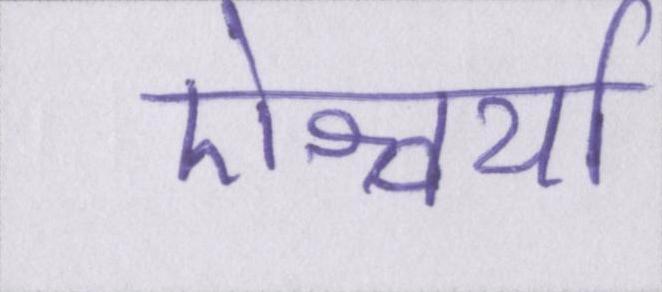 ऐश्वर्या